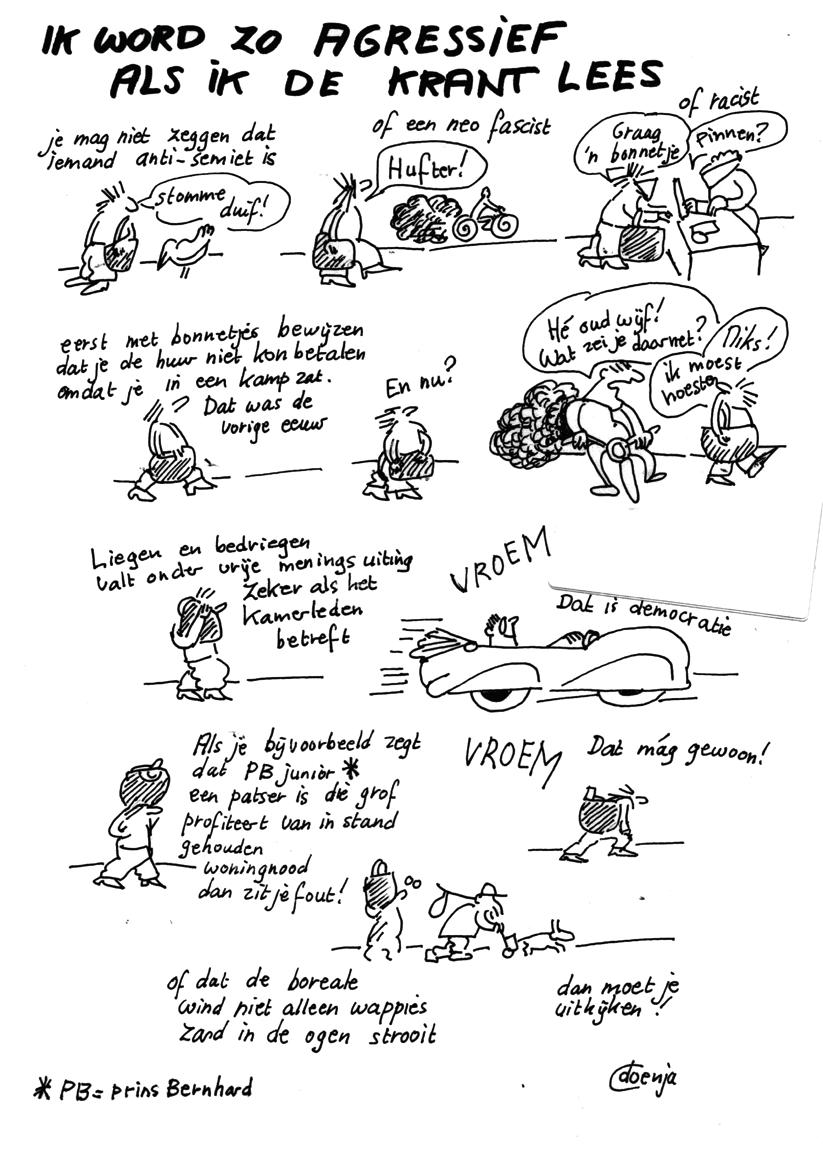 IK WORD ZO AGRESSIEF
ALS IK DE KRANT LEES
je mag niet zeggen dat
iemand anti-semiet is
stomme
duif!
of een neo fascist
Hufter!
of racist
Graag
'n bonnetje
Pinnen?
eerst met bonnetjes bewijzen
dat je de huur niet kon betalen
omdat je in een kamp zat.
Dat was de
vorige eeuw
En nu?
Hé oud wijf!
Wat zei je daarnet?
Niks!
ik moest
hoesten
Liegen en bedriegen
valt onder vrije menings uiting
Zeker als het
Kamerleden
betreft
VROEM
Dat is democratie
Als je bijvoorbeeld zegt
dat PB junior *
een patser is die grof
profiteert van in stand
gehouden
woningnood
dan zit je fout!
VROEM
Dat mág gewoon!
of dat de boreale
wind niet alleen wappies
zand in de ogen strooit
dan moet je
uitkijken!
* PB= prins Bernhard
doenja